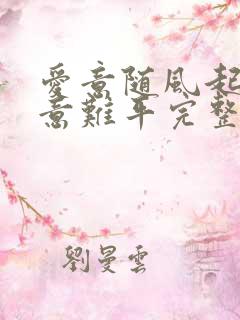 愛意随風起
意難平完整
劉曼雲